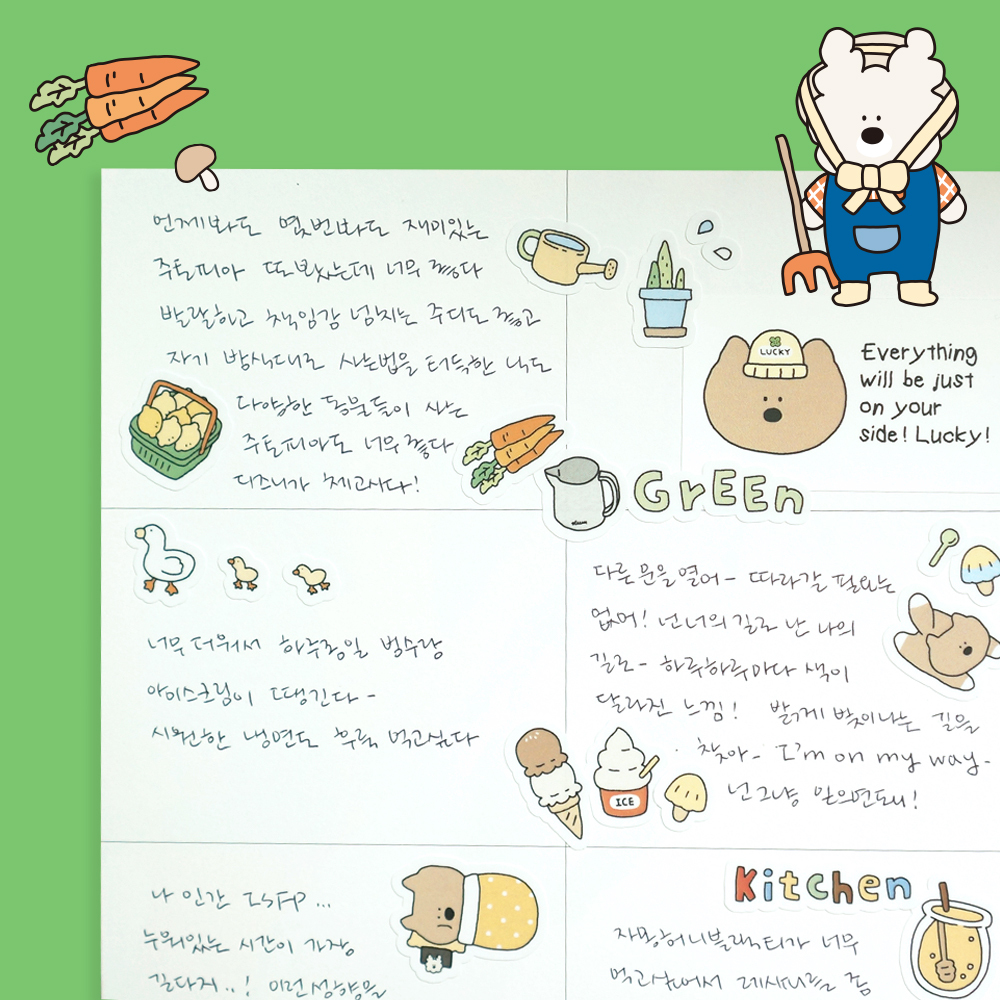 언제봐도 몇번봐도 재미있는
주토피아 또봤는데 너무 쩐다
발랄하고 책임감 넘치는 주디도 쩔고
자기 방식대로 사는법을 터득한 닉도
다양한 동물들이 사는
주토피아도 너무 쩔다
디즈니가 최고시다!
LUCKY
Everything
will be just
on your
side! Lucky!
GrEEn
너무 더워서 하루종일 빙수랑
아이스크림이 땡긴다 -
시원한 냉면도 후루룩 먹고싶다
다른 문을 열어 - 따라갈 필요는
없어! 넌 너의 길로 난 나의
길로 - 하루하루마다 색이
달라진 느낌! 밝게 빛이나는 길을
찾아 - I'm on my way -
넌 그냥 믿으면 돼!
ICE
나 인간 ISFP ...
누워있는 시간이 가장
길다지 ..! 이런성향을
Kitchen
자몽허니블랙티가 너무
먹고싶어서 레시피를 좀